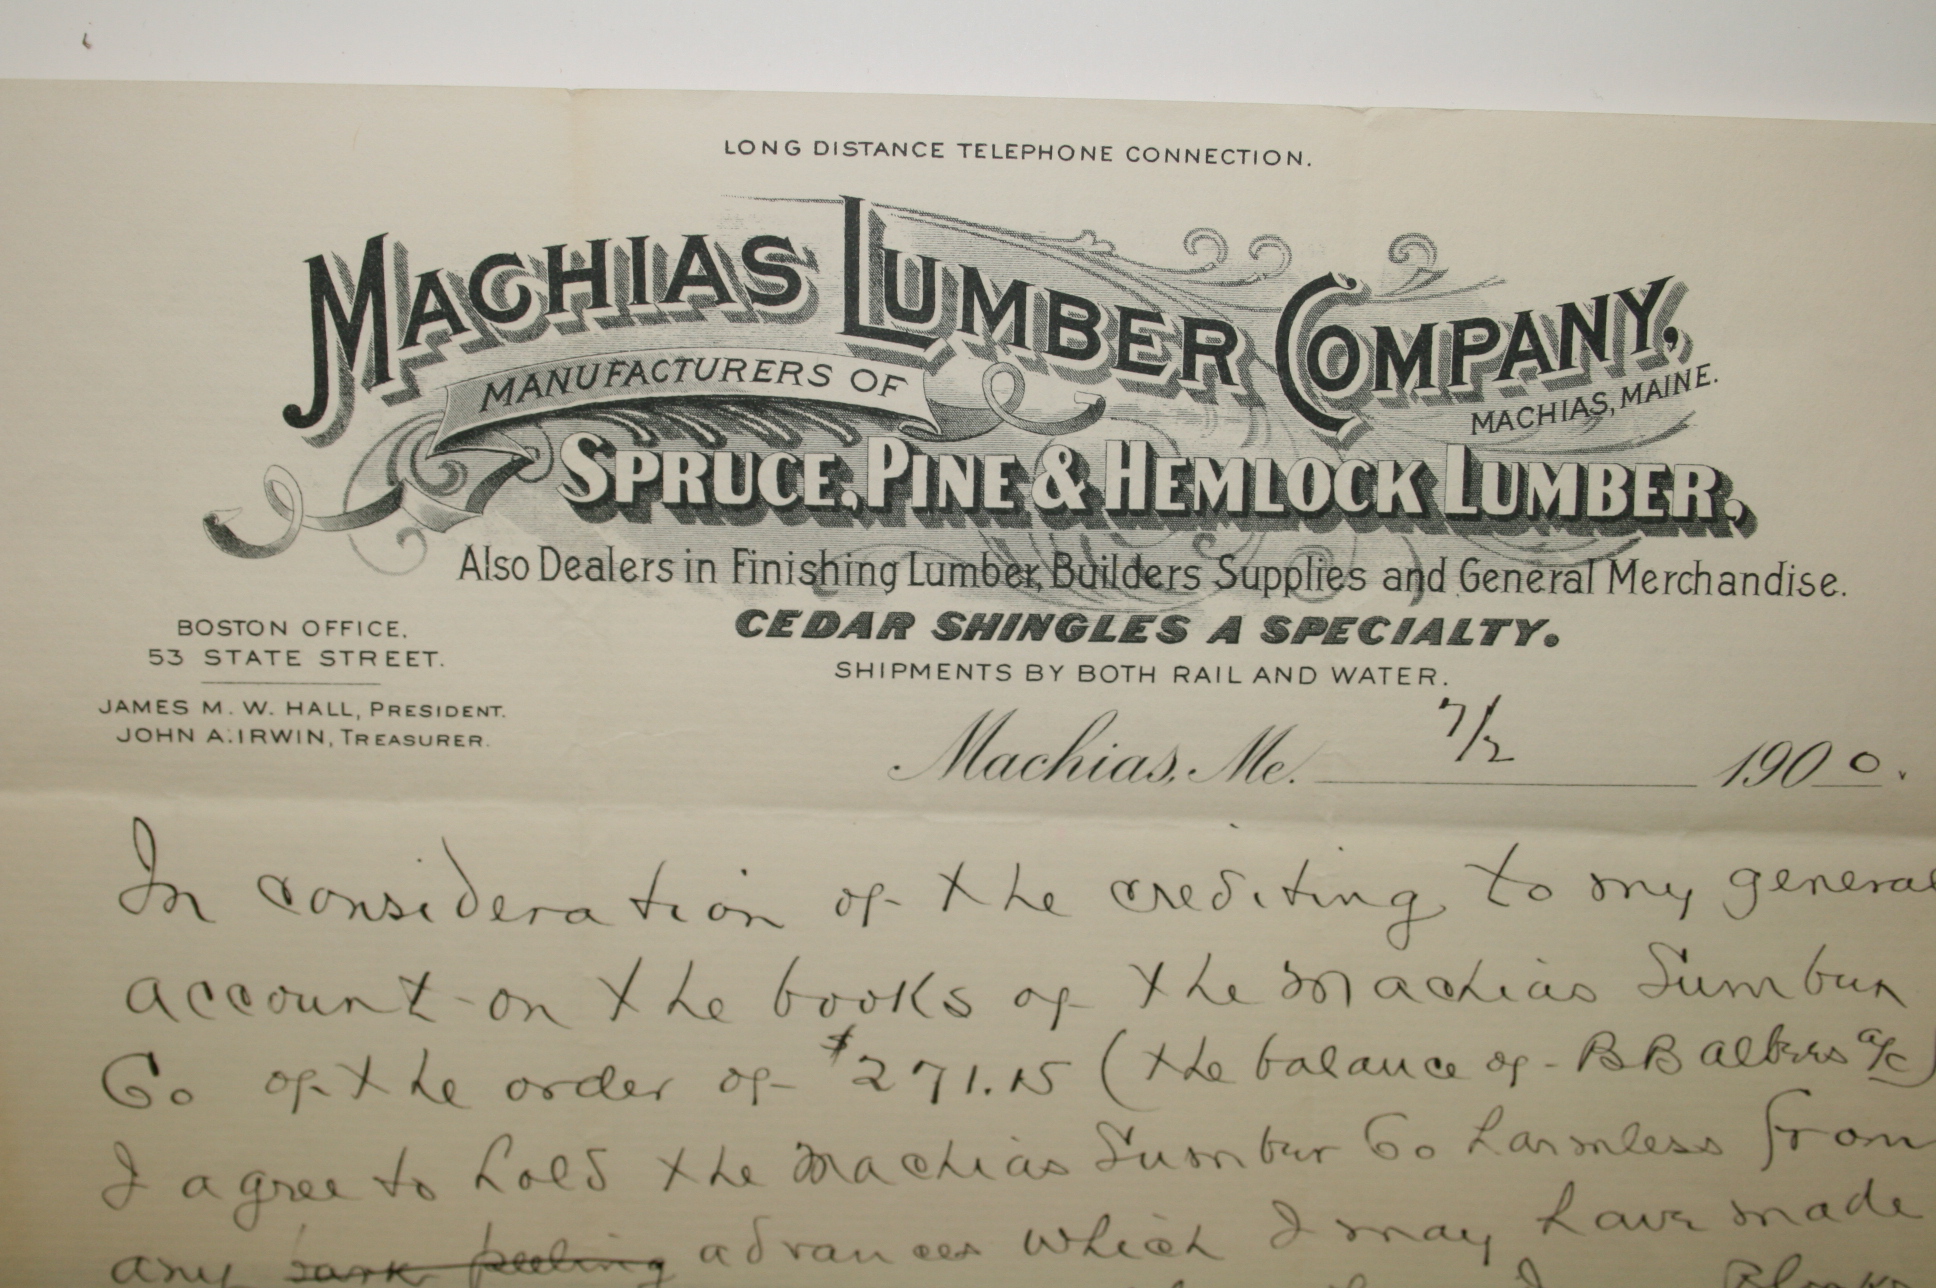 LONG DISTANCE TELEPHONE CONNECTION.
MACHIAS LUMBER COMPANY,
MACHIAS, MAINE.
MANUFACTURERS OF
SPRUCE, PINE & HEMLOCK LUMBER,
Also Dealers in Finishing Lumber, Builders Supplies and General Merchandise.
CEDAR SHINGLES A SPECIALTY.
SHIPMENTS BY BOTH RAIL AND WATER.
BOSTON OFFICE,
53 STATE STREET.
JAMES M. W. HALL, PRESIDENT.
JOHN A. IRWIN, TREASURER.
Machias, Me. 7/2 1900.
In consideration of the crediting to my general
account on the books of the Machias Lumber
Co of the order of $271.15 (the balance of B B Albers a/c)
I agree to hold the Machias Lumber Co harmless from
any bark peeling advances which I may have made